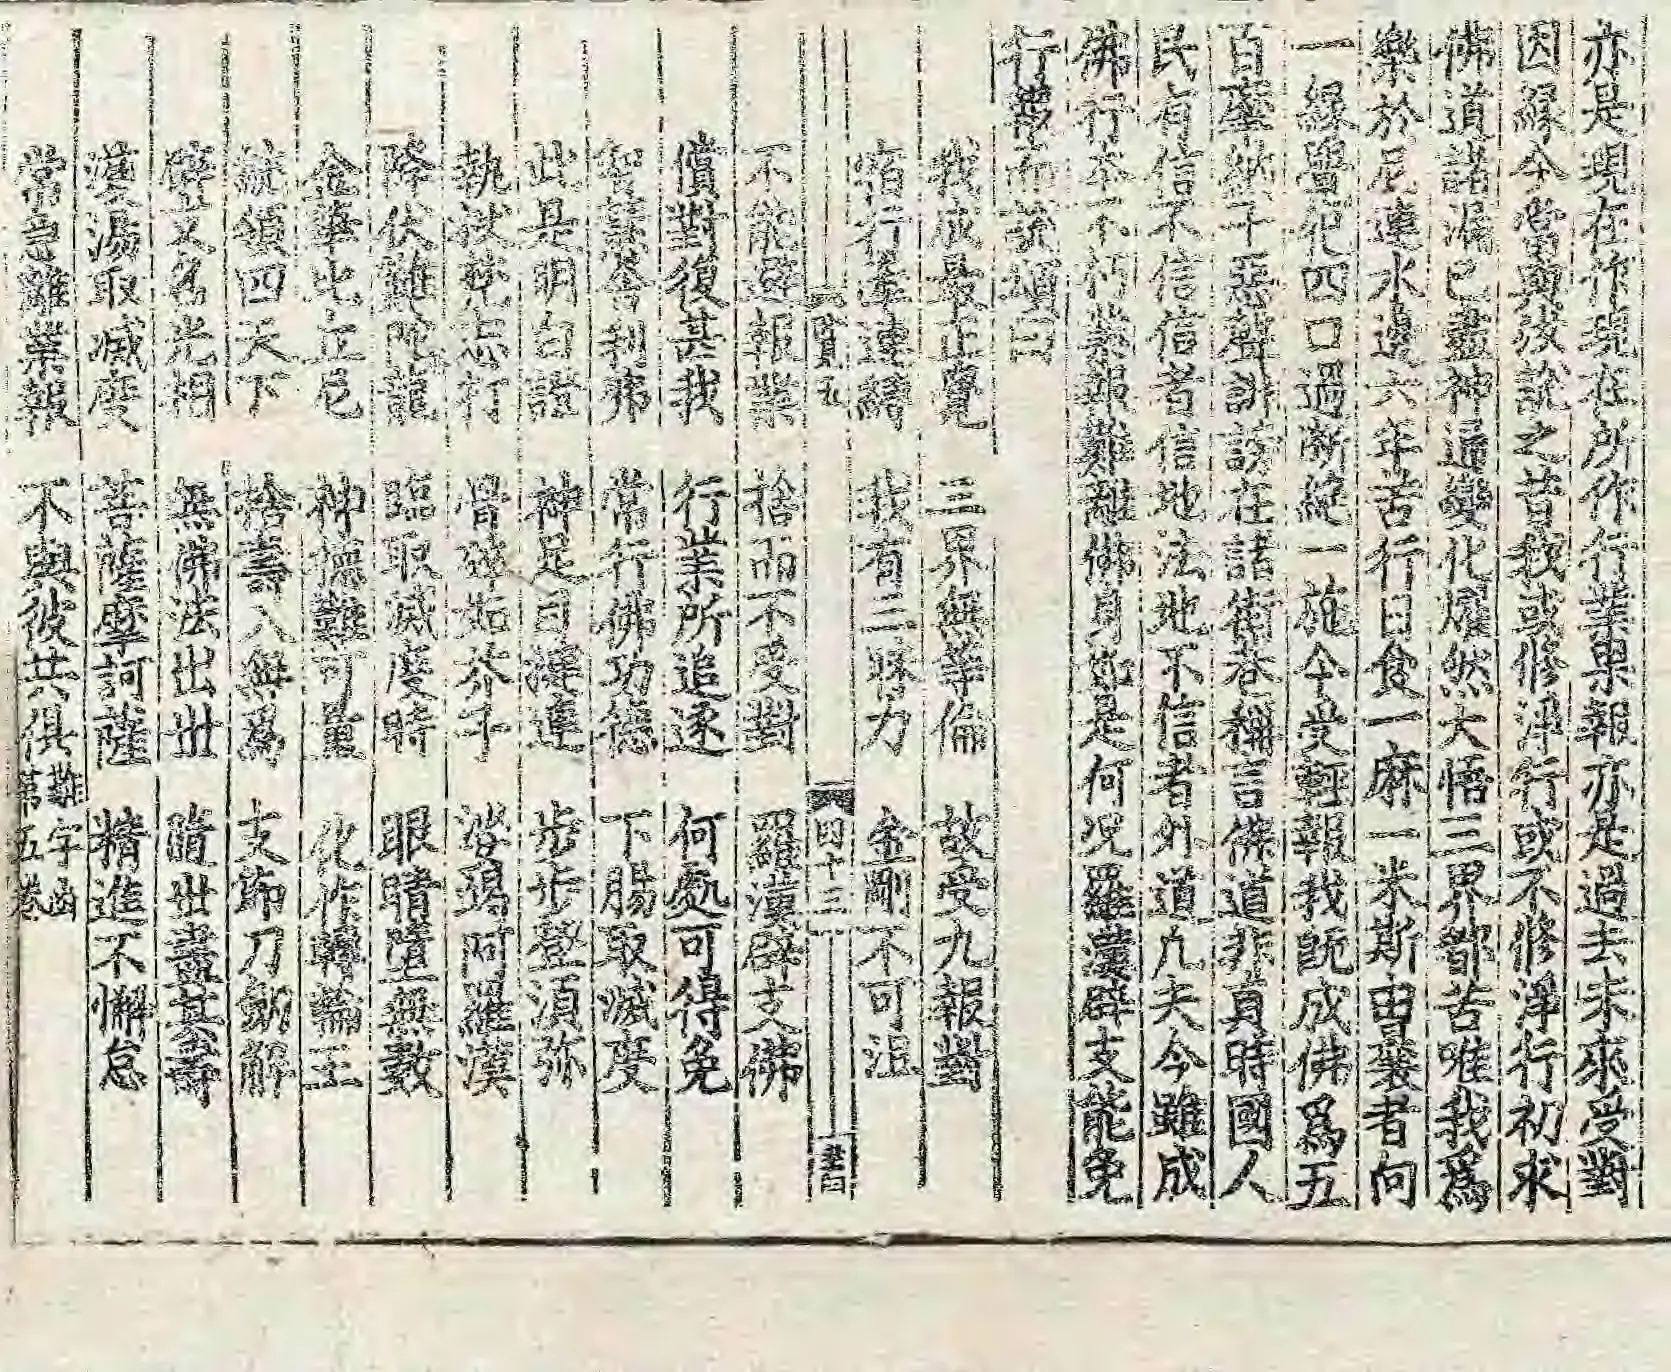 亦是現在作現在所作行業果報亦是過去未來受對
因緣今當與汝說之昔我或修淨行或不修淨行初求
佛道諸漏已盡神通變化爛然大悟三界都苦唯我爲
樂於尼連水邊六年苦行日食一麻一米斯由曩者向
一緣覺犯四口過斷絕一施今受輕報我旣成佛爲五
百
千惡聲誹謗在諸街巷稱言佛道非真時國人
民有信不信信者信地法地不信者外道凡夫今雖成
佛行本不朽業報難離佛身如是何況羅漢辟支能免
行
而說頌曰
我成最正覺 三界無等倫 故受九報對
宿行牽連縛 我有三昧力 金剛不可沮
四十三
不能避報業 捨而不受對 羅漢辟支佛
償對復甚我 行業所追逐 何處可得免
智慧舍利弗 常行佛功德 下腸取滅度
此是明白證 神足目淨連 步步登須弥
執杖梵志打 骨碎如芥子 鴦掘阿羅漢
降伏難陀龍 臨取滅度時 眼睛墮無數
金華比丘尼 神德難可量 化作轉輪王
統領四天下 捨壽入無爲 支節刀劒解
寶又名光相 無佛法出世 隨世盡其壽
漢湯取滅度 菩薩摩訶薩 精進不懈怠
常意離業報 不與彼共俱 難字函第五卷